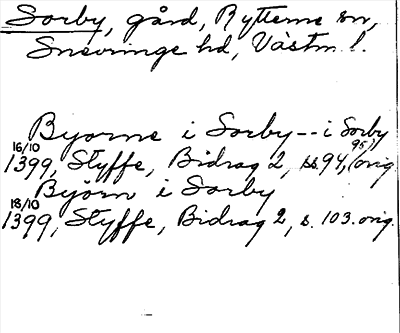 Sorby, gård, Rytterne sn,
Snevringe hd, Västm. l.
Byorne i Sorby -- i Sorby
16/10 1399, Styffe, Bidrag 2, ss. 94, 95, orig.
Byörn i Sorby
18/10 1399, Styffe, Bidrag 2, s. 103. orig.